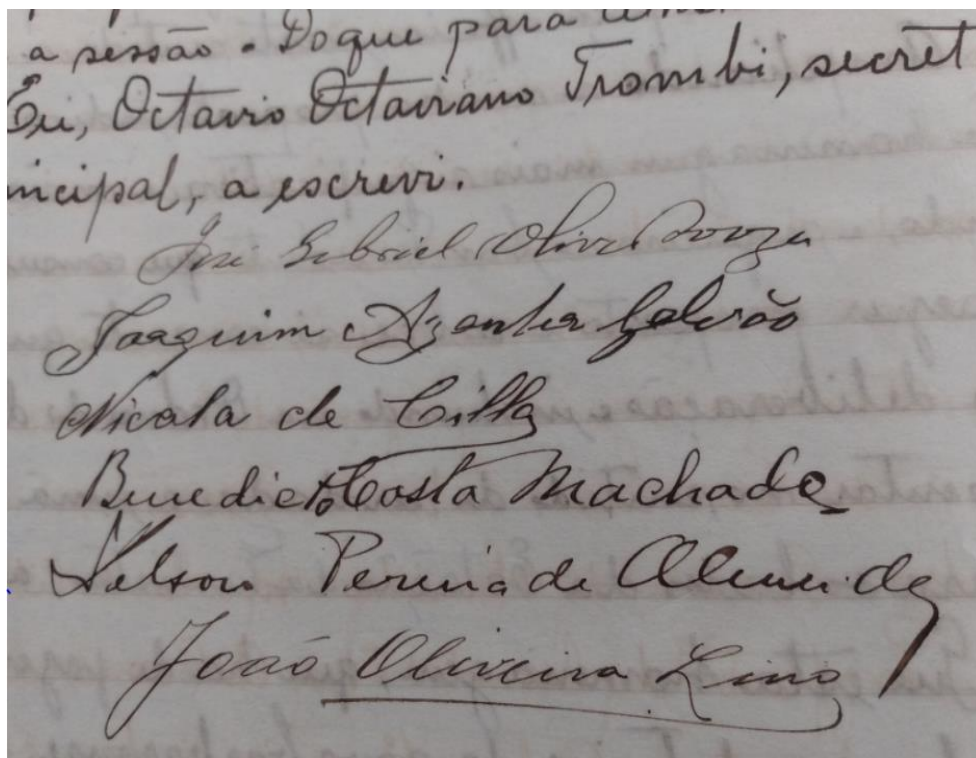 a sessão. Do que para
Eu, Octavio Octaviano Trombi, secret
ncipal, a escrevi.
José Gabriel Olive Souza
Joaquim Azanha Galvão
Nicola de Cillo
Benedicto Costa Machado
Nelson Pereira de Almeida
João Oliveira Lino